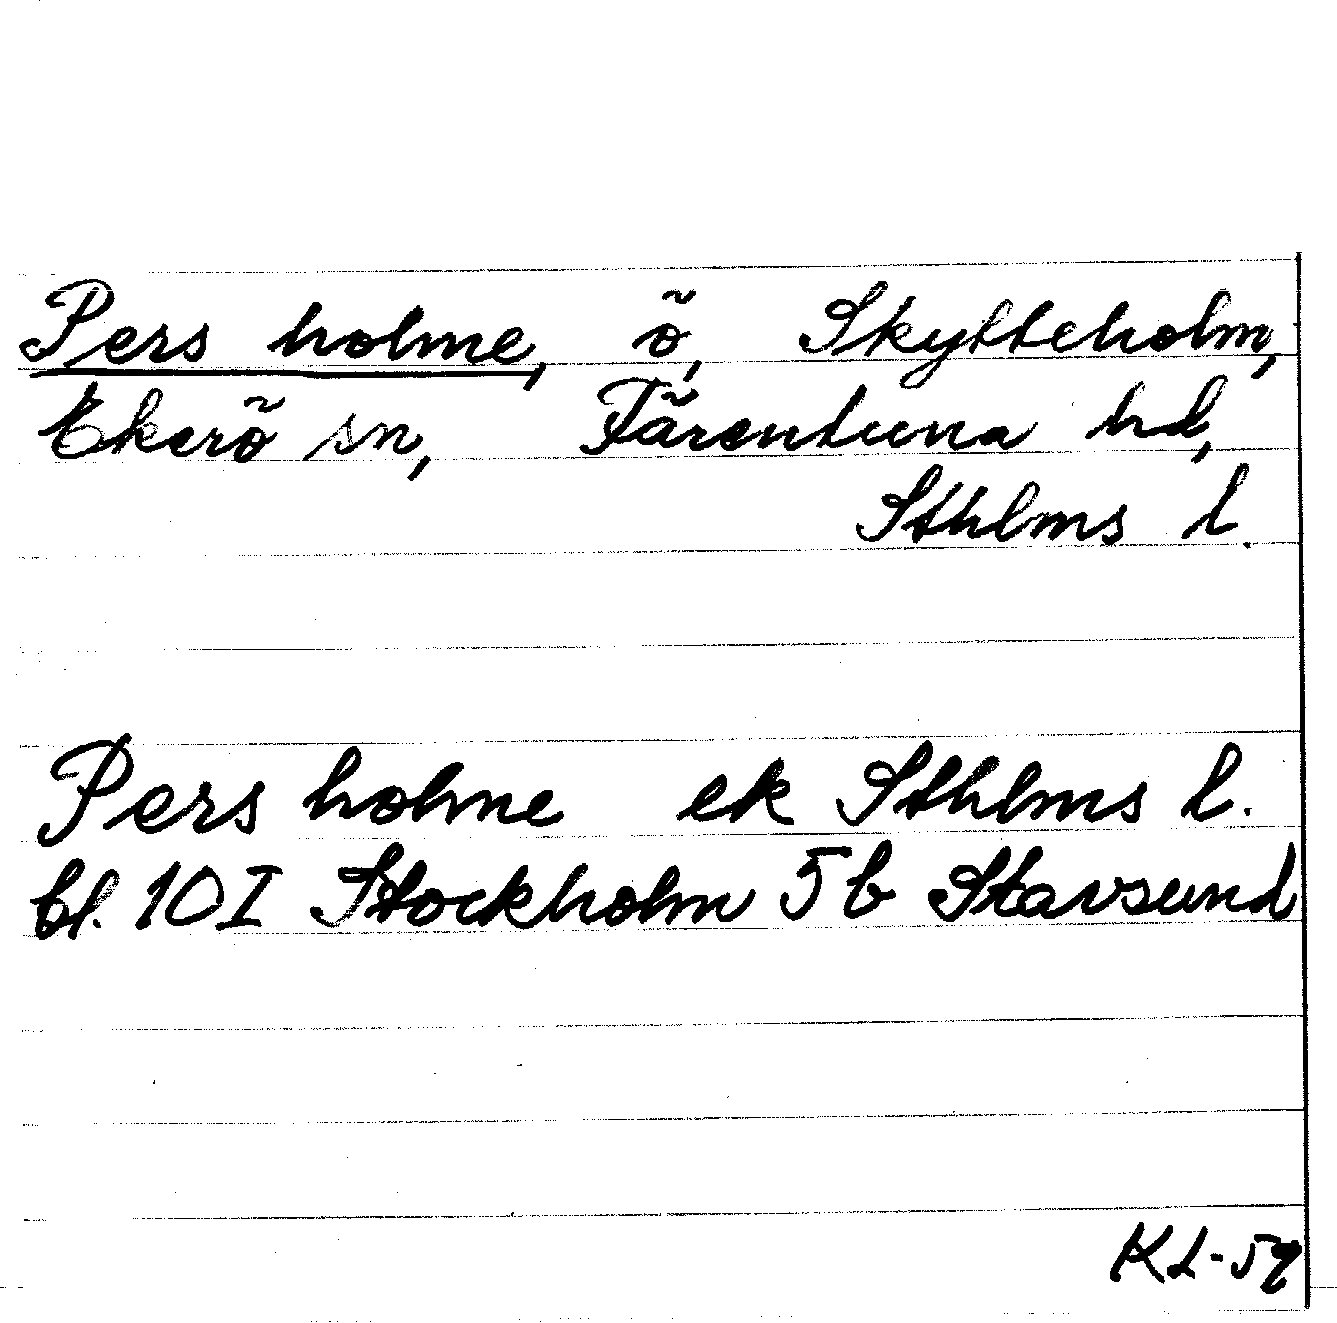 Pers holme, ö, Skytteholm,
Ekerö sn, Färentuna hd,
Sthlms l.
Pers holme ek Sthlms l.
bl. 10I Stockholm 5b Stavsund
KL-59